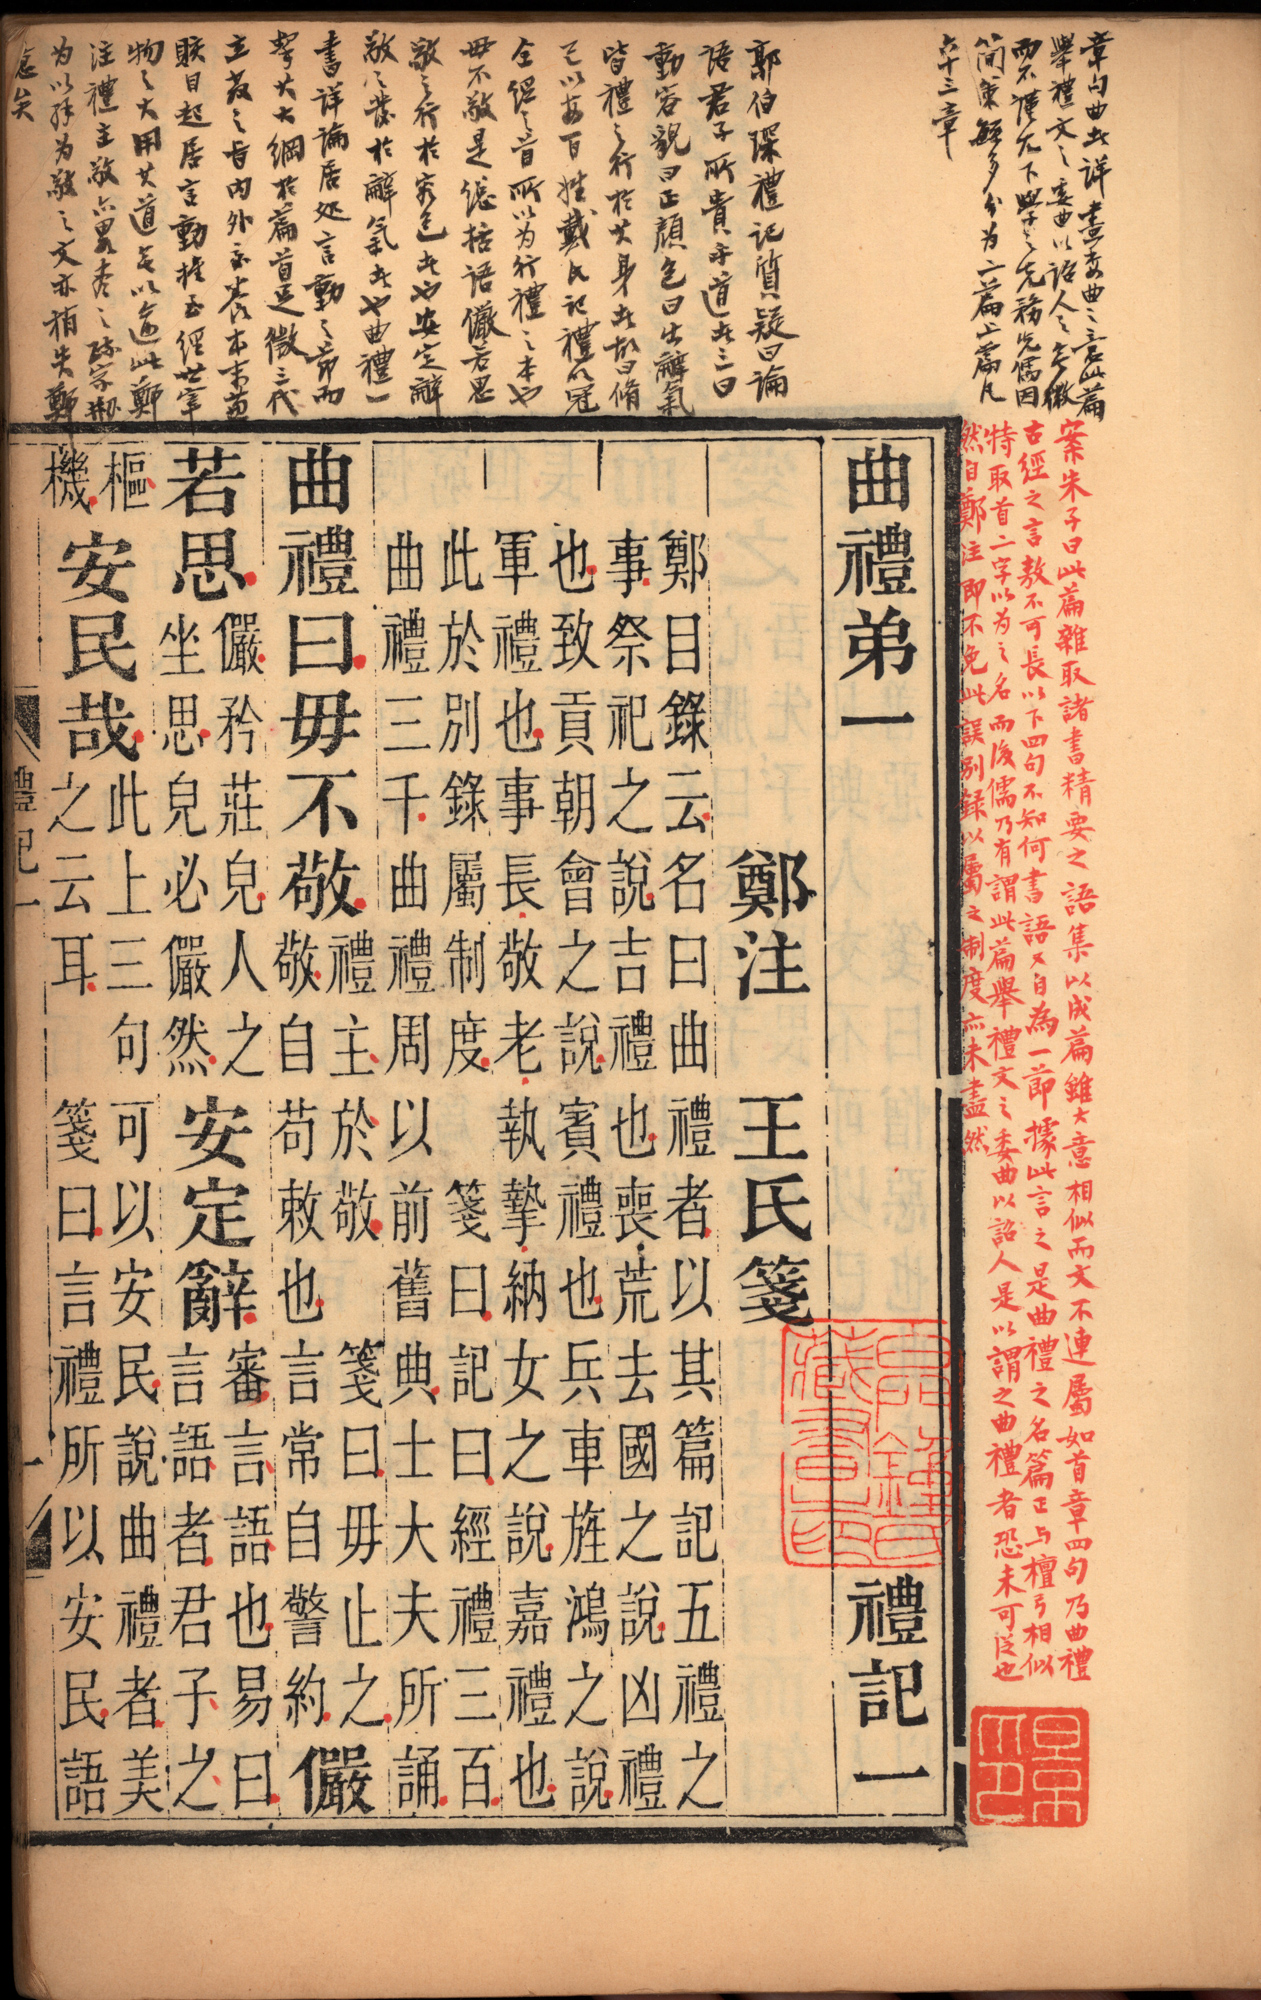 章句曲者詳盡委曲之言此篇
舉禮文之委曲以詔人之
而不謹尤下學之先務先儒因
簡策繁多分为二篇上篇凡
六十三章
郭伯琛禮記質疑曰論
語君子所貴乎道者三曰
動容貌曰正顏色曰出辭氣
皆禮之行於其身者故曰脩
己以安百姓戴氏記禮以冠
全經之首所以为行禮之本也
毋不敬是總括語儼若思
敬之行於容色者也安定辭
敬之發於辭氣者也曲禮一
書詳論居处言動之節而
挈其大綱於篇首
立教之旨內外交養本末
賅自起居言動推至經世宰
物之大用其道
注禮主敬
为以
案朱子曰此篇雜取諸書精要之語集以成篇雖大意相似而文不連屬如首章四句乃曲禮
古經之言敖不可長以下四句不知何書語又自為一節據此言之是曲禮之名篇正与檀弓相似
特取首二字以为之名而後儒乃有謂此篇舉禮文之委曲以詔人是以謂之曲禮者恐未可泛也
然自鄭注即不免此誤別録以屬之制度亦未盡然
曲禮弟一 禮記一
鄭注 王氏箋
鄭目錄云名曰曲禮者以其篇記五禮之
事祭祀之說吉禮也喪荒去國之說凶禮
也致貢朝會之說賓禮也兵車旌鴻之說
軍禮也事長敬老執摯納女之說嘉禮也
此於別錄屬制度 箋曰記曰經禮三百
曲禮三千曲禮周以前舊典士大夫所誦
曲禮曰毋不敬禮主於敬 箋曰毋止之
敬自苟敕也言常自警約儼
若思儼矜莊皃人之
坐思皃必儼然安定辭審言語也易曰
言語者君子之
樞
機安民哉此上三句可以安民說曲禮者美
之云耳 箋曰言禮所以安民語
禮記一
一